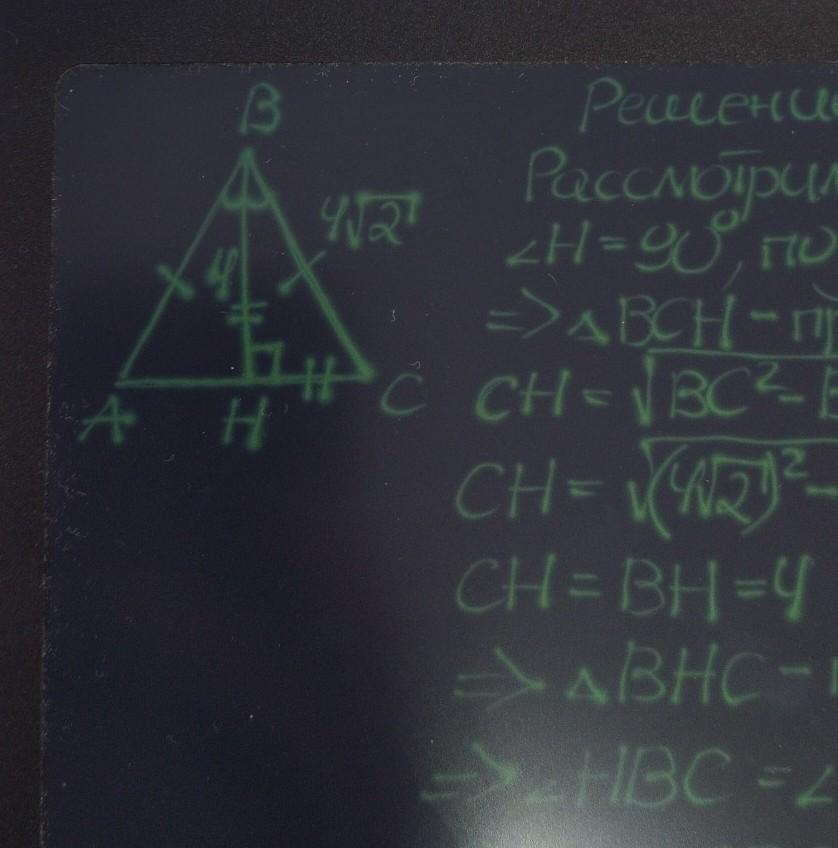 B
4√2
4
A
H
C
Решени
Рассмотрим
∠H = 90°, по
=> △BCH - пр
CH = √BC² - B
CH = √(4√2)² -
CH = BH = 4
=> △BHC -
=> ∠HBC = ∠